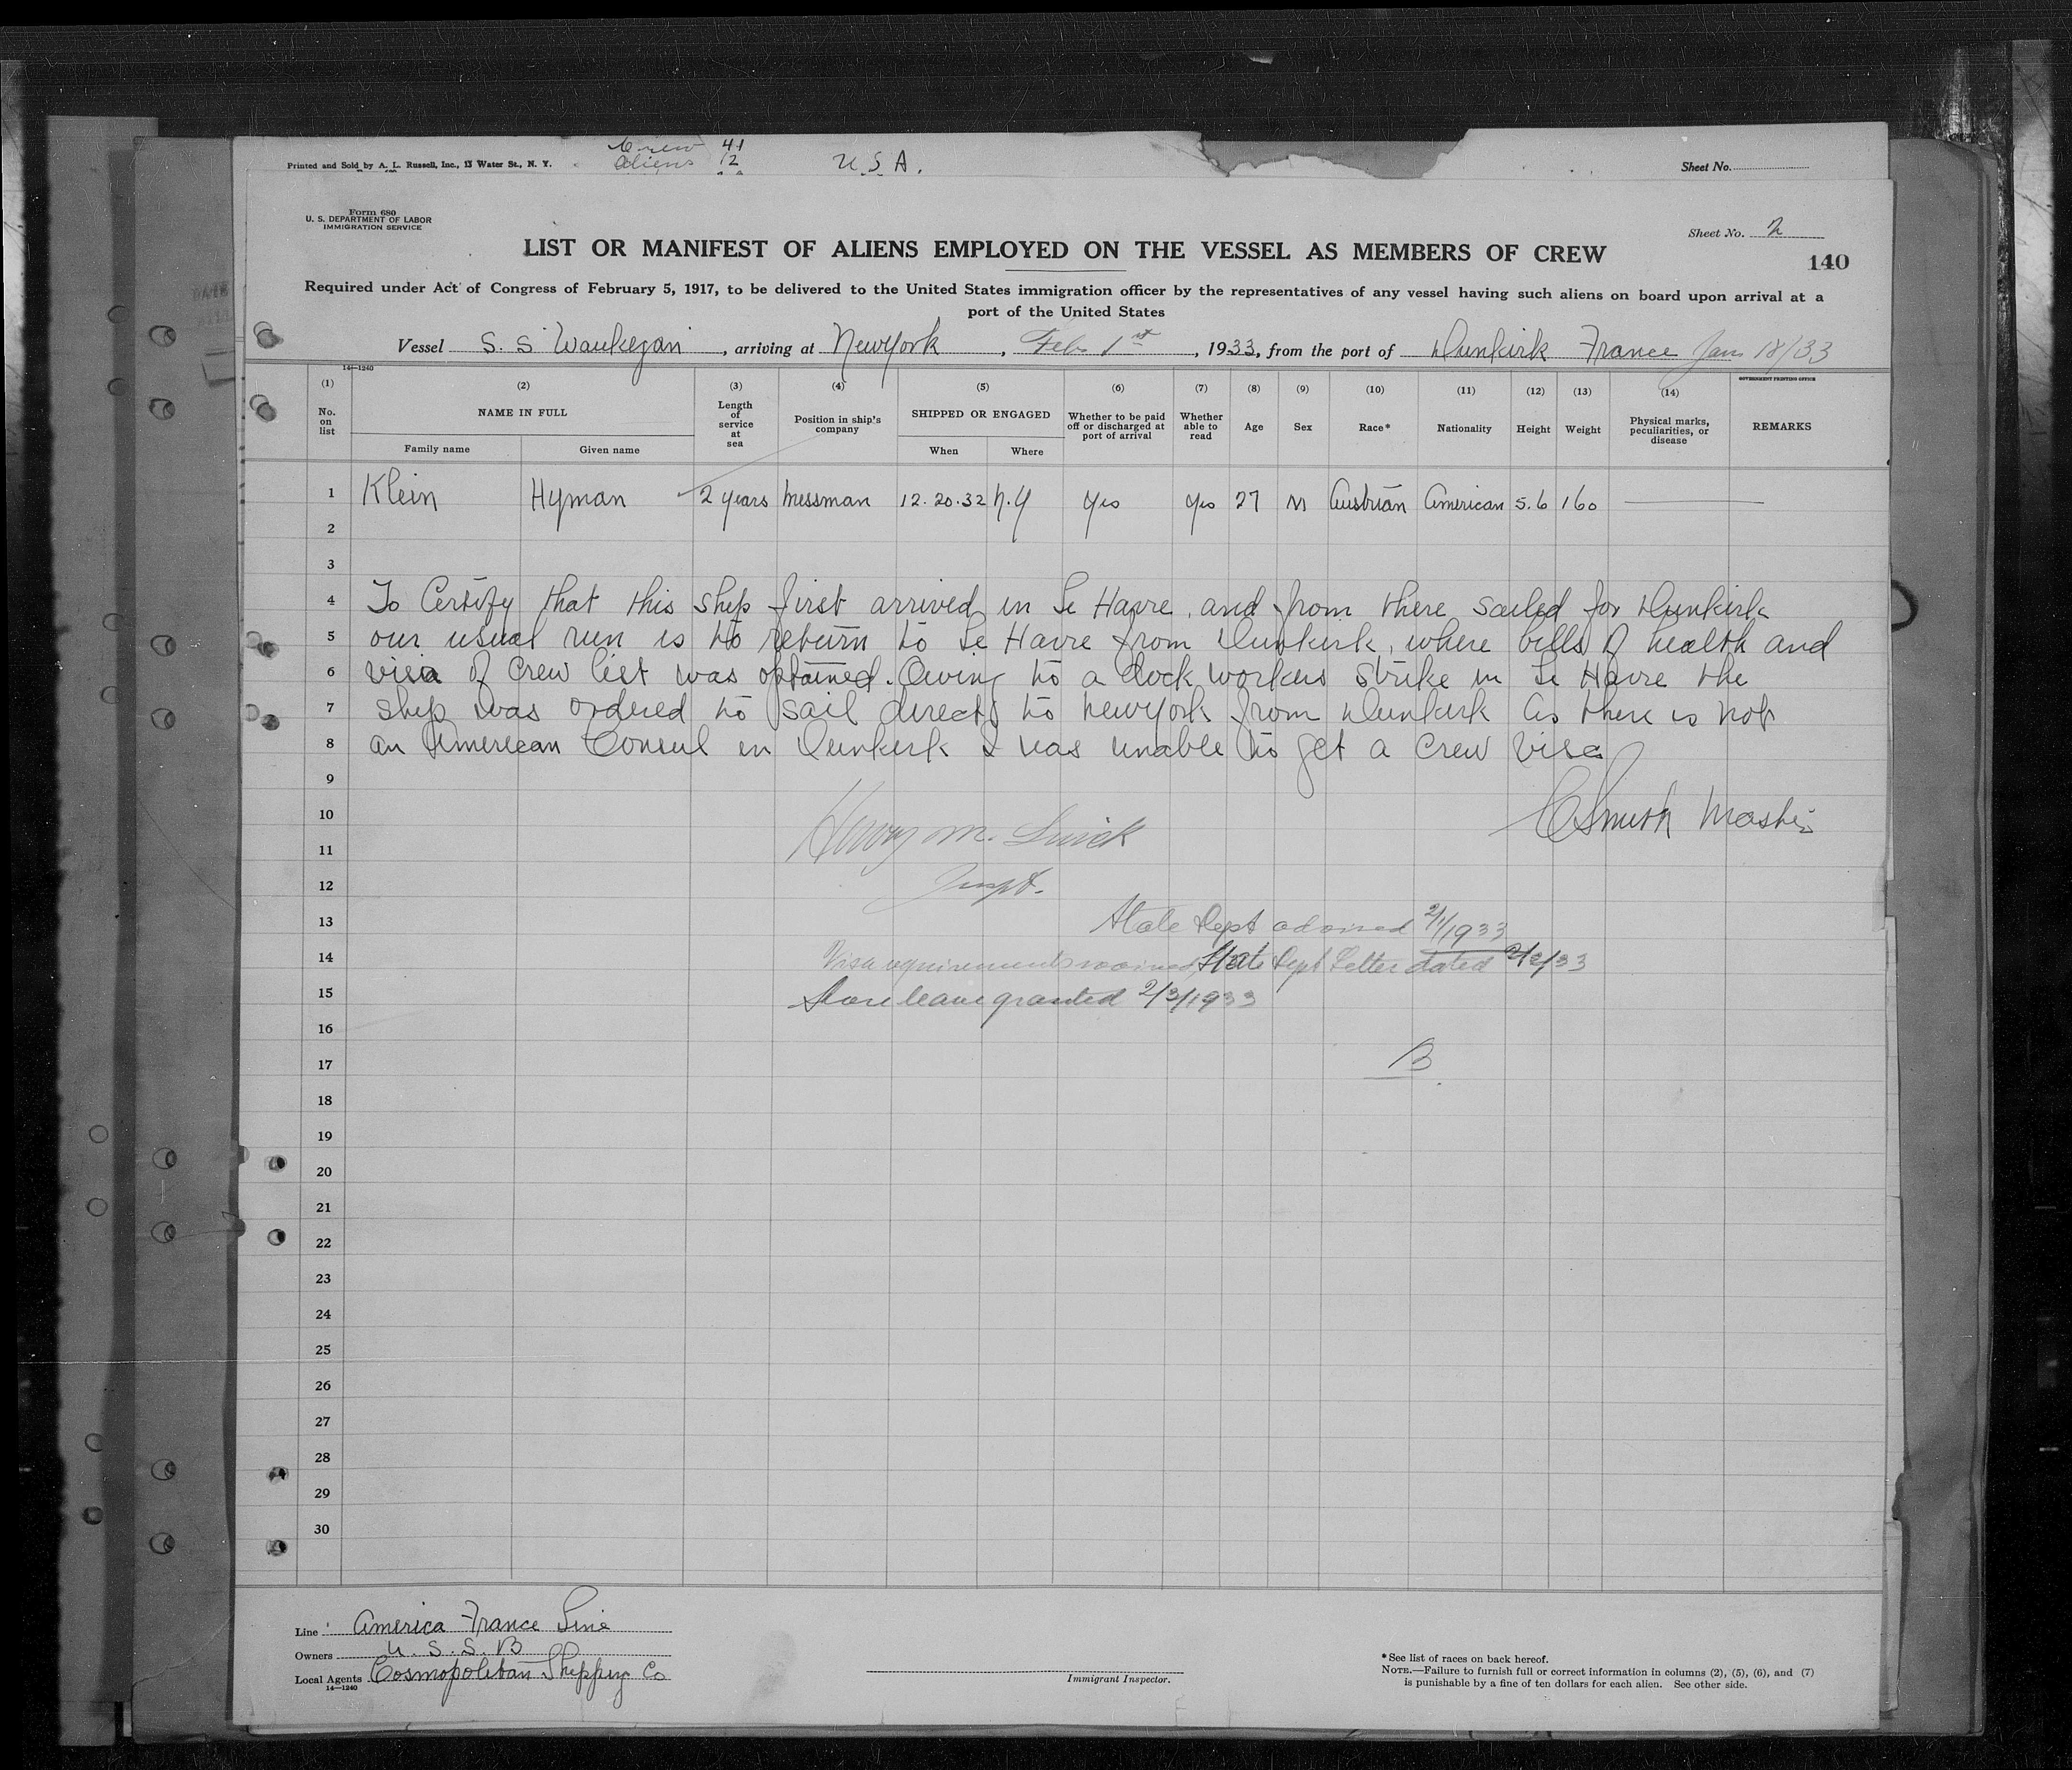 Printed and Sold by A. L. Russell, Inc., 13 Water St., N. Y.
Crew 41
aliens 12
U.S.A.
Sheet No.
Form 680
U. S. DEPARTMENT OF LABOR
IMMIGRATION SERVICE
Sheet No. 2
LIST OR MANIFEST OF ALIENS EMPLOYED ON THE VESSEL AS MEMBERS OF CREW
140
Required under Act of Congress of February 5, 1917, to be delivered to the United States immigration officer by the representatives of any vessel having such aliens on board upon arrival at a
port of the United States
Vessel S. S Waukegan, arriving at New York, Feb 1st, 1933, from the port of Dunkirk France Jan 18/33
14—1240
GOVERNMENT PRINTING OFFICE
(1) (2) (3) (4) (5) (6) (7) (8) (9) (10) (11) (12) (13) (14)
No. on list
NAME IN FULL
Family name Given name
Length of service at sea
Position in ship's company
SHIPPED OR ENGAGED
When Where
Whether to be paid off or discharged at port of arrival
Whether able to read
Age
Sex
Race*
Nationality
Height
Weight
Physical marks, peculiarities, or disease
REMARKS
1 Klein Hyman 2 years Messman 12.20.32 N.Y yes yes 27 M Austrian American 5.6 160
2
3
4 To Certify that this ship first arrived in Le Havre, and from there sailed for Dunkirk
5 our usual run is to return to Le Havre from Dunkirk, where bills of health and
6 visa of crew list was optained. Owing to a dock workers strike in Le Havre the
7 ship was ordered to sail direct to New York from Dunkirk As there is not
8 an American Consul in Dunkerk I was unable to get a crew visa
9
10 C Smith Master
11 Henry M.
12 Inspt.
13 State Dept advised 2/1/1933
14 Visa requirements waived State Dept Letter dated 2/2/33
15 Shore leave granted 2/3/1933
16
17 B
18
19
20
21
22
23
24
25
26
27
28
29
30
Line America France Line
Owners U.S.S.B
Local Agents Cosmopolitan Shipping Co
14—1240
Immigrant Inspector.
*See list of races on back hereof.
NOTE.—Failure to furnish full or correct information in columns (2), (5), (6), and (7)
is punishable by a fine of ten dollars for each alien. See other side.